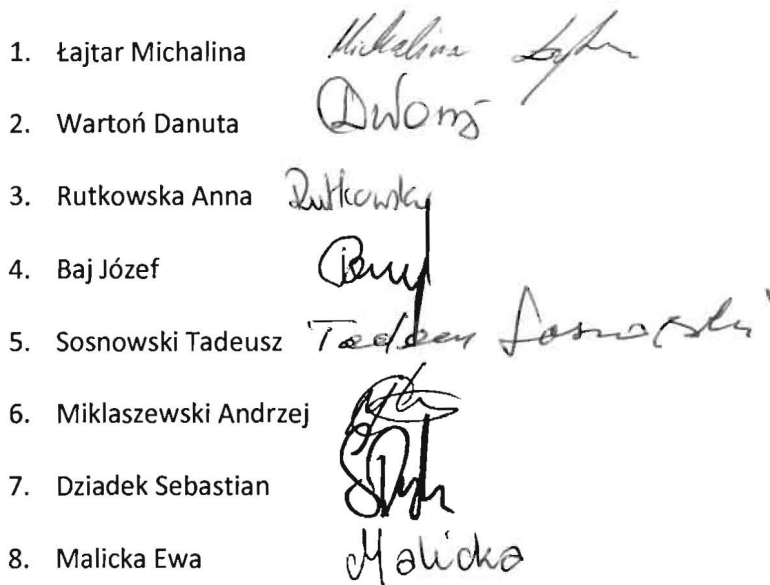 1. Łajtar Michalina Michalina
2. Wartoń Danuta
3. Rutkowska Anna Rutkowska
4. Baj Józef
5. Sosnowski Tadeusz Tadeusz Sosnowski
6. Miklaszewski Andrzej
7. Dziadek Sebastian
8. Malicka Ewa Malicka